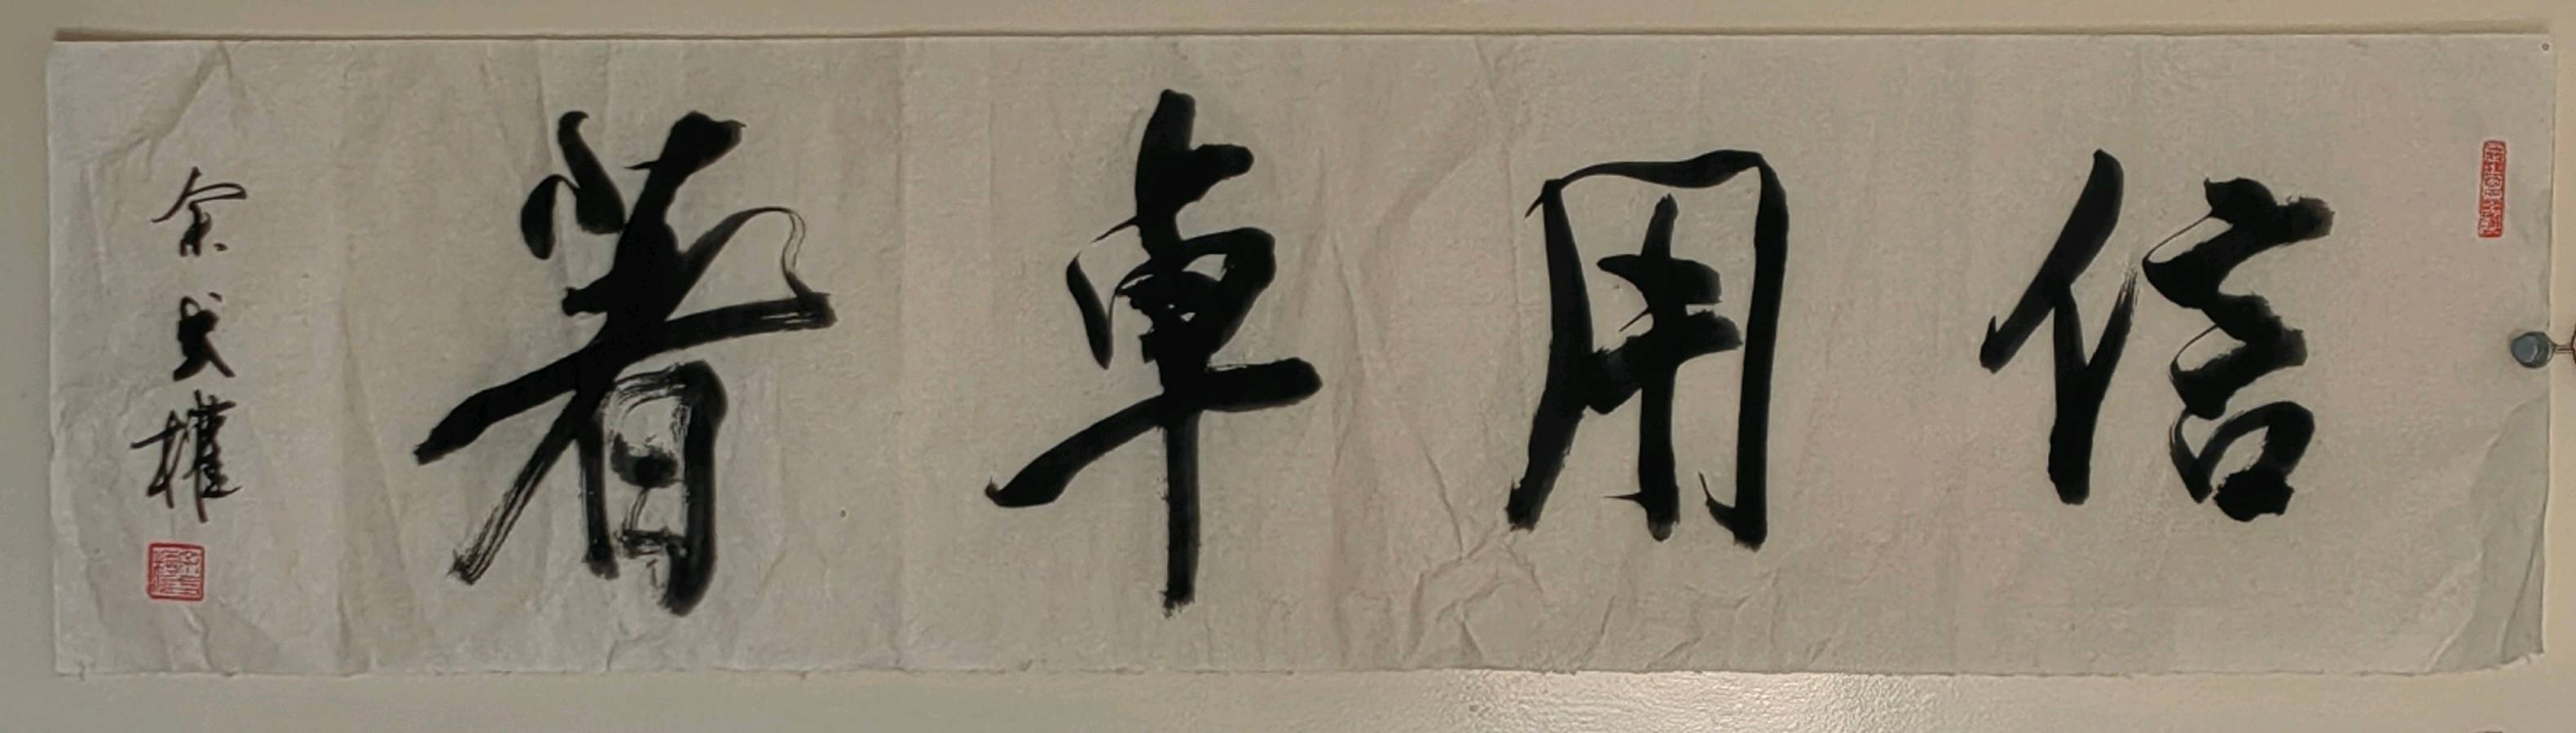 信用卓著
余文權